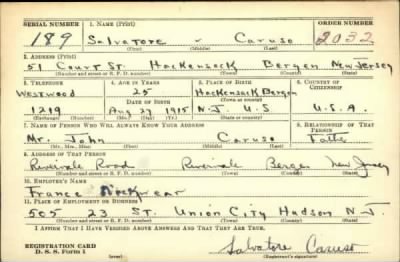 SERIAL NUMBER 1. NAME (Print) ORDER NUMBER
189 Salvatore - Caruso 2032
(First) (Middle) (Last)
2. ADDRESS (Print)
51 Court St. Hackensack Bergen New Jersey
(Number and street or R. F. D. number) (Town) (County) (State)
3. TELEPHONE 4. AGE IN YEARS 5. PLACE OF BIRTH 6. COUNTRY OF CITIZENSHIP
Westwood 25 Hackensack Bergen
DATE OF BIRTH (Town or county)
1219 Aug 27 1915 N.J. U.S U.S.A.
(Exchange) (Number) (Mo.) (Day) (Yr.) (State or country)
7. NAME OF PERSON WHO WILL ALWAYS KNOW YOUR ADDRESS 8. RELATIONSHIP OF THAT PERSON
Mr. John Caruso Father
(Mr., Mrs., Miss) (First) (Middle) (Last)
9. ADDRESS OF THAT PERSON
Rivervale Road Rivervale Bergen New Jersey
(Number and street or R. F. D. number) (Town) (County) (State)
10. EMPLOYER'S NAME
France Neckwear
11. PLACE OF EMPLOYMENT OR BUSINESS
505 23 St. Union City Hudson N.J.
(Number and street or R. F. D. number) (Town) (County) (State)
I AFFIRM THAT I HAVE VERIFIED ABOVE ANSWERS AND THAT THEY ARE TRUE.
REGISTRATION CARD
D. S. S. Form 1 Salvatore Caruso
(over) (Registrant's signature)